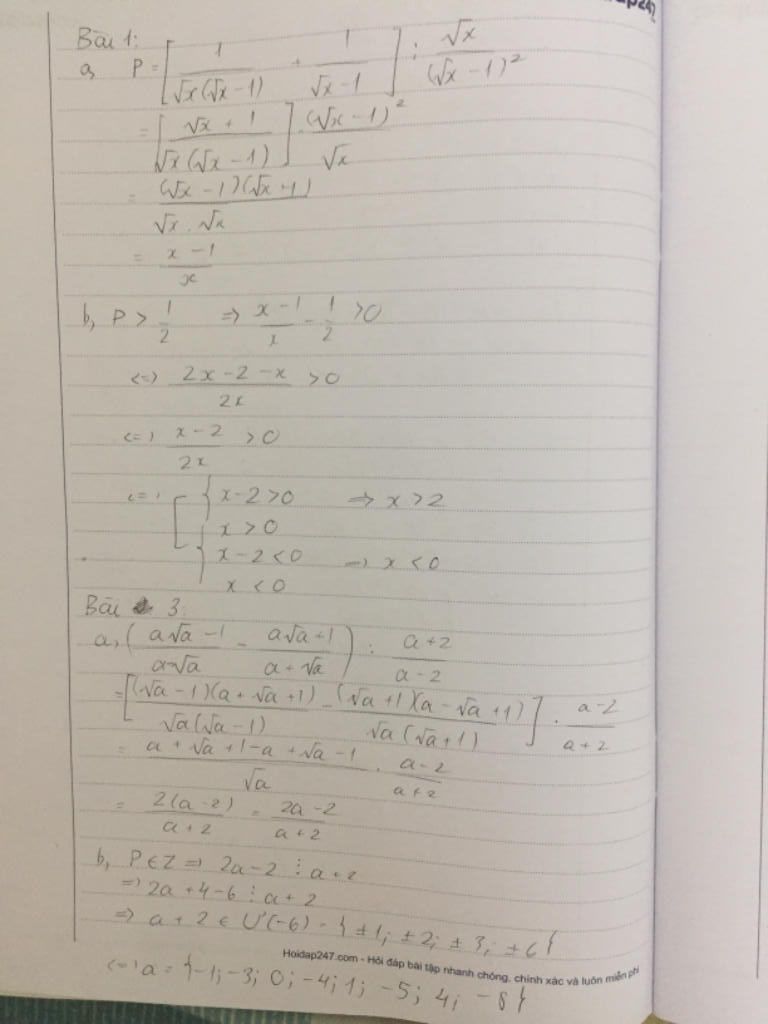 Bài 1:
a, P = [1/(√x(√x - 1)) + 1/(√x - 1)] : √x/(√x - 1)²
= [(√x + 1)/(√x(√x - 1))] . (√x - 1)²/√x
= (√x - 1)(√x + 1)/(√x . √x)
= (x - 1)/x
b, P > 1/2 => (x - 1)/x - 1/2 > 0
<=> (2x - 2 - x)/2x > 0
<=> (x - 2)/2x > 0
<=> [ { x - 2 > 0 => x > 2
x > 0
{ x - 2 < 0 => x < 0
x < 0
Bài 3:
a, ((a√a - 1)/(a - √a) - (a√a + 1)/(a + √a)) : (a + 2)/(a - 2)
= [(√a - 1)(a + √a + 1)/(√a(√a - 1)) - (√a + 1)(a - √a + 1)/(√a(√a + 1))] . (a - 2)/(a + 2)
= (a + √a + 1 - a + √a - 1)/√a . (a - 2)/(a + 2)
= 2(a - 2)/(a + 2) = (2a - 2)/(a + 2)
b, P ∈ Z => 2a - 2 ⋮ a + 2
=> 2a + 4 - 6 ⋮ a + 2
=> a + 2 ∈ Ư(-6) = {±1; ±2; ±3; ±6}
Hoidap247.com - Hỏi đáp bài tập nhanh chóng, chính xác và luôn miễn phí
<=> a = {-1; -3; 0; -4; 1; -5; 4; -8}